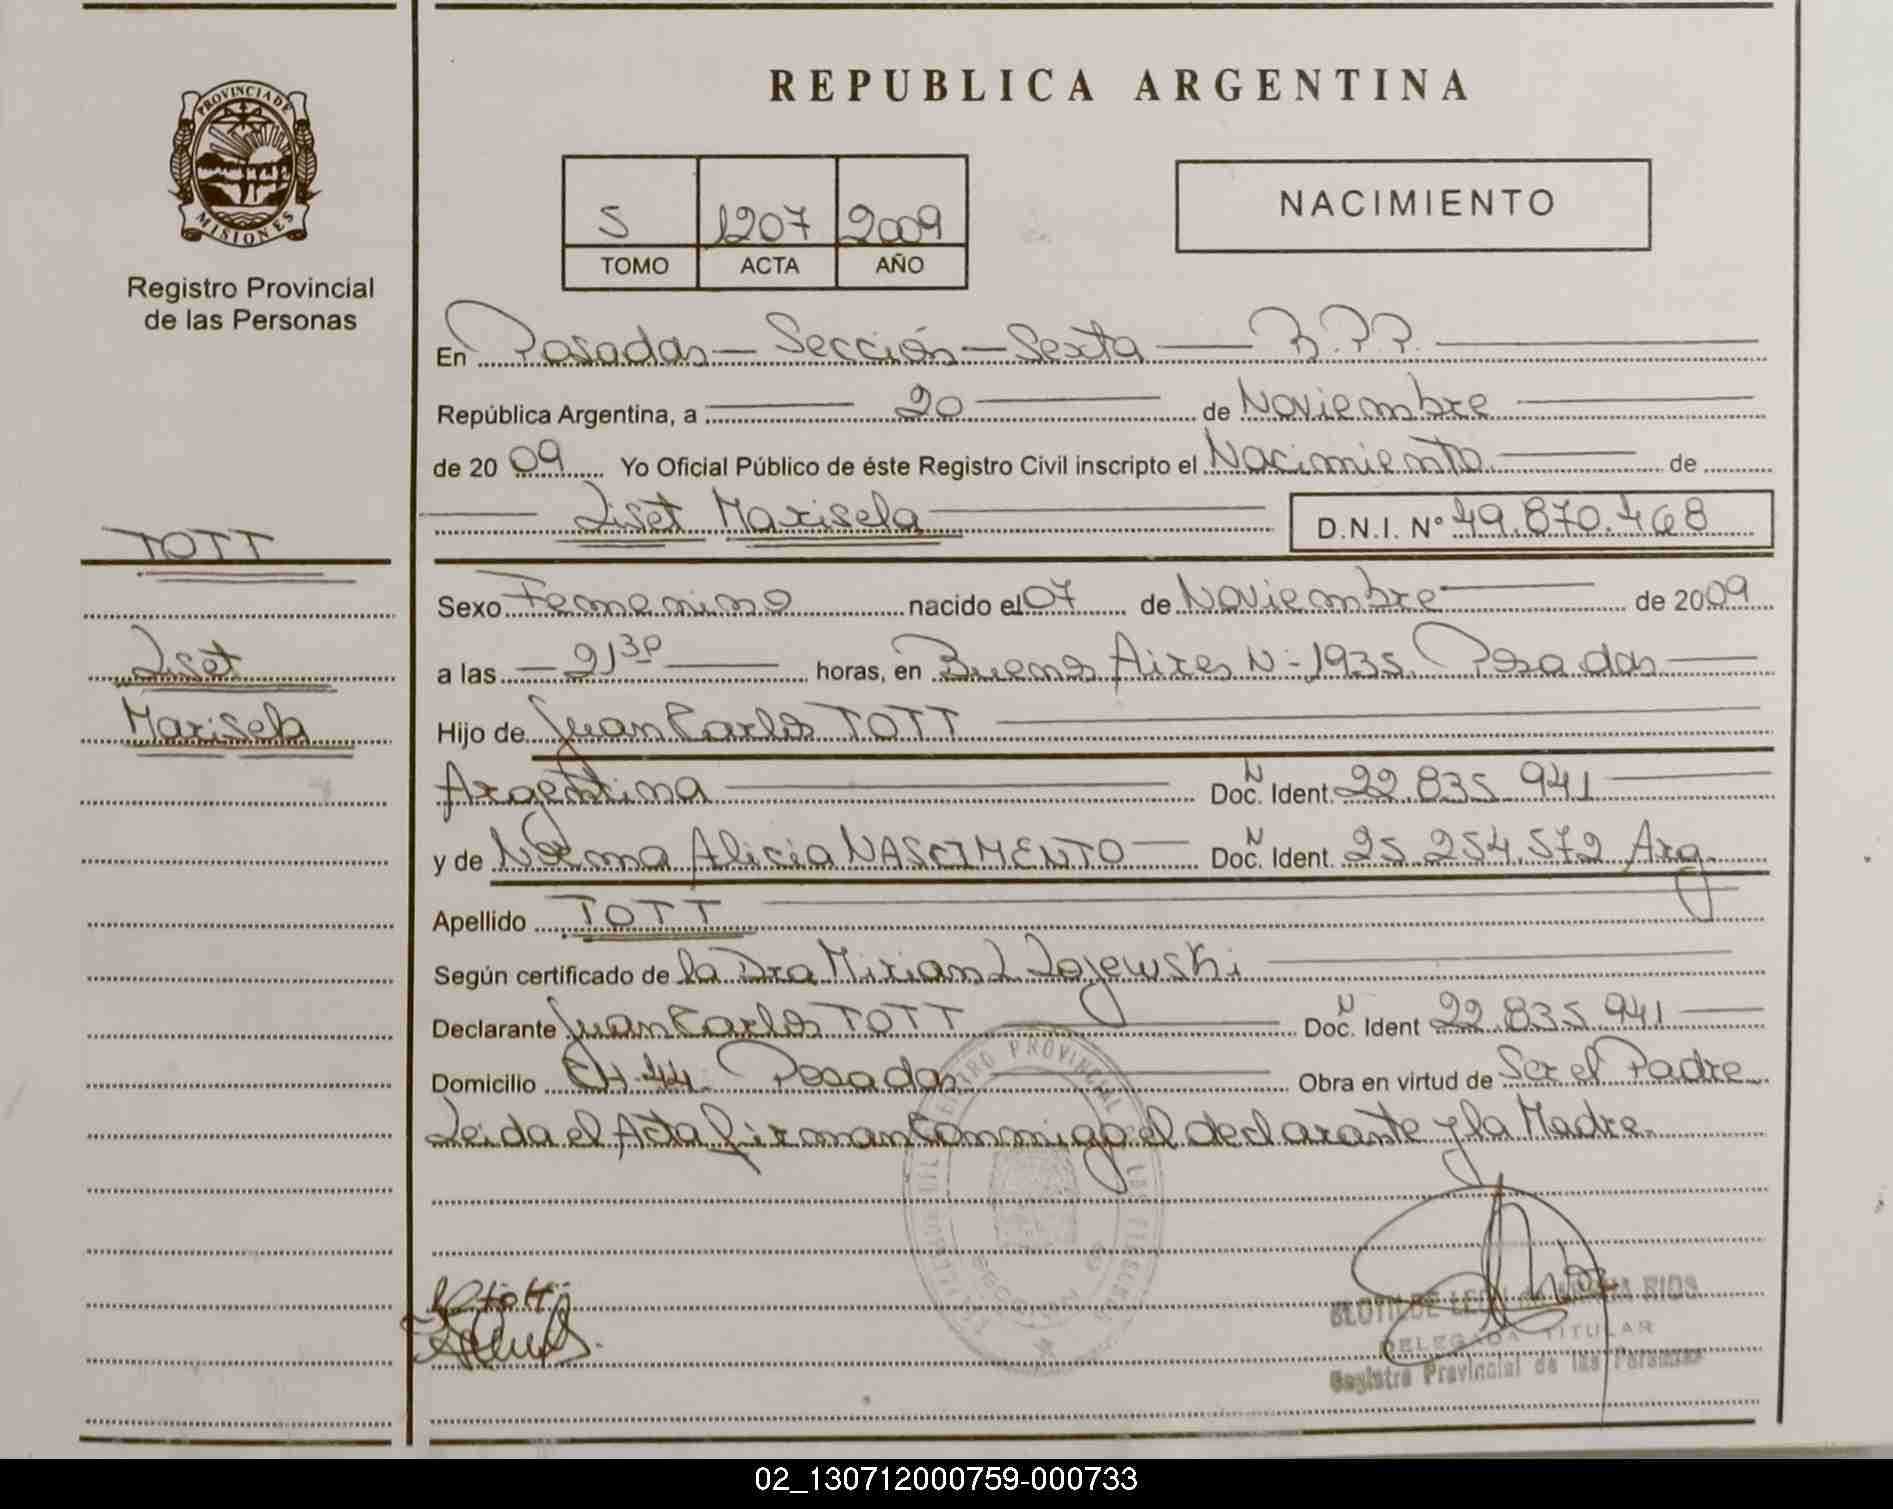 REPUBLICA ARGENTINA
PROVINCIA DE
MISIONES
Registro Provincial
de las Personas
5 1207 2009
TOMO ACTA AÑO
NACIMIENTO
En Posadas — Sección — Sexta — R.P.P.
República Argentina, a 20 de Noviembre
de 2009 Yo Oficial Público de éste Registro Civil inscripto el Nacimiento de
Liset Marisela D.N.I. N° 49.870.468
TOTT
Liset
Marisela
Sexo Femenino nacido el 07 de Noviembre de 2009
a las — 21 30 — horas, en Buenos Aires N- 1935. Posadas
Hijo de Juan Carlos TOTT
Argentina Doc. N Ident. 22.835 941
y de Norma Alicia NASCIMENTO Doc. N Ident. 25 254.572 Arg.
Apellido TOTT
Según certificado de la Dra Mirian L Zajewski
Declarante Juan Carlos TOTT Doc. N Ident 22.835 941
Domicilio CH. 44. Posadas Obra en virtud de Ser el Padre
Leida el Acta firman Conmigo el declarante y la Madre.
DELEGADA TITULAR
Registro Provincial de las Personas
02_130712000759-000733